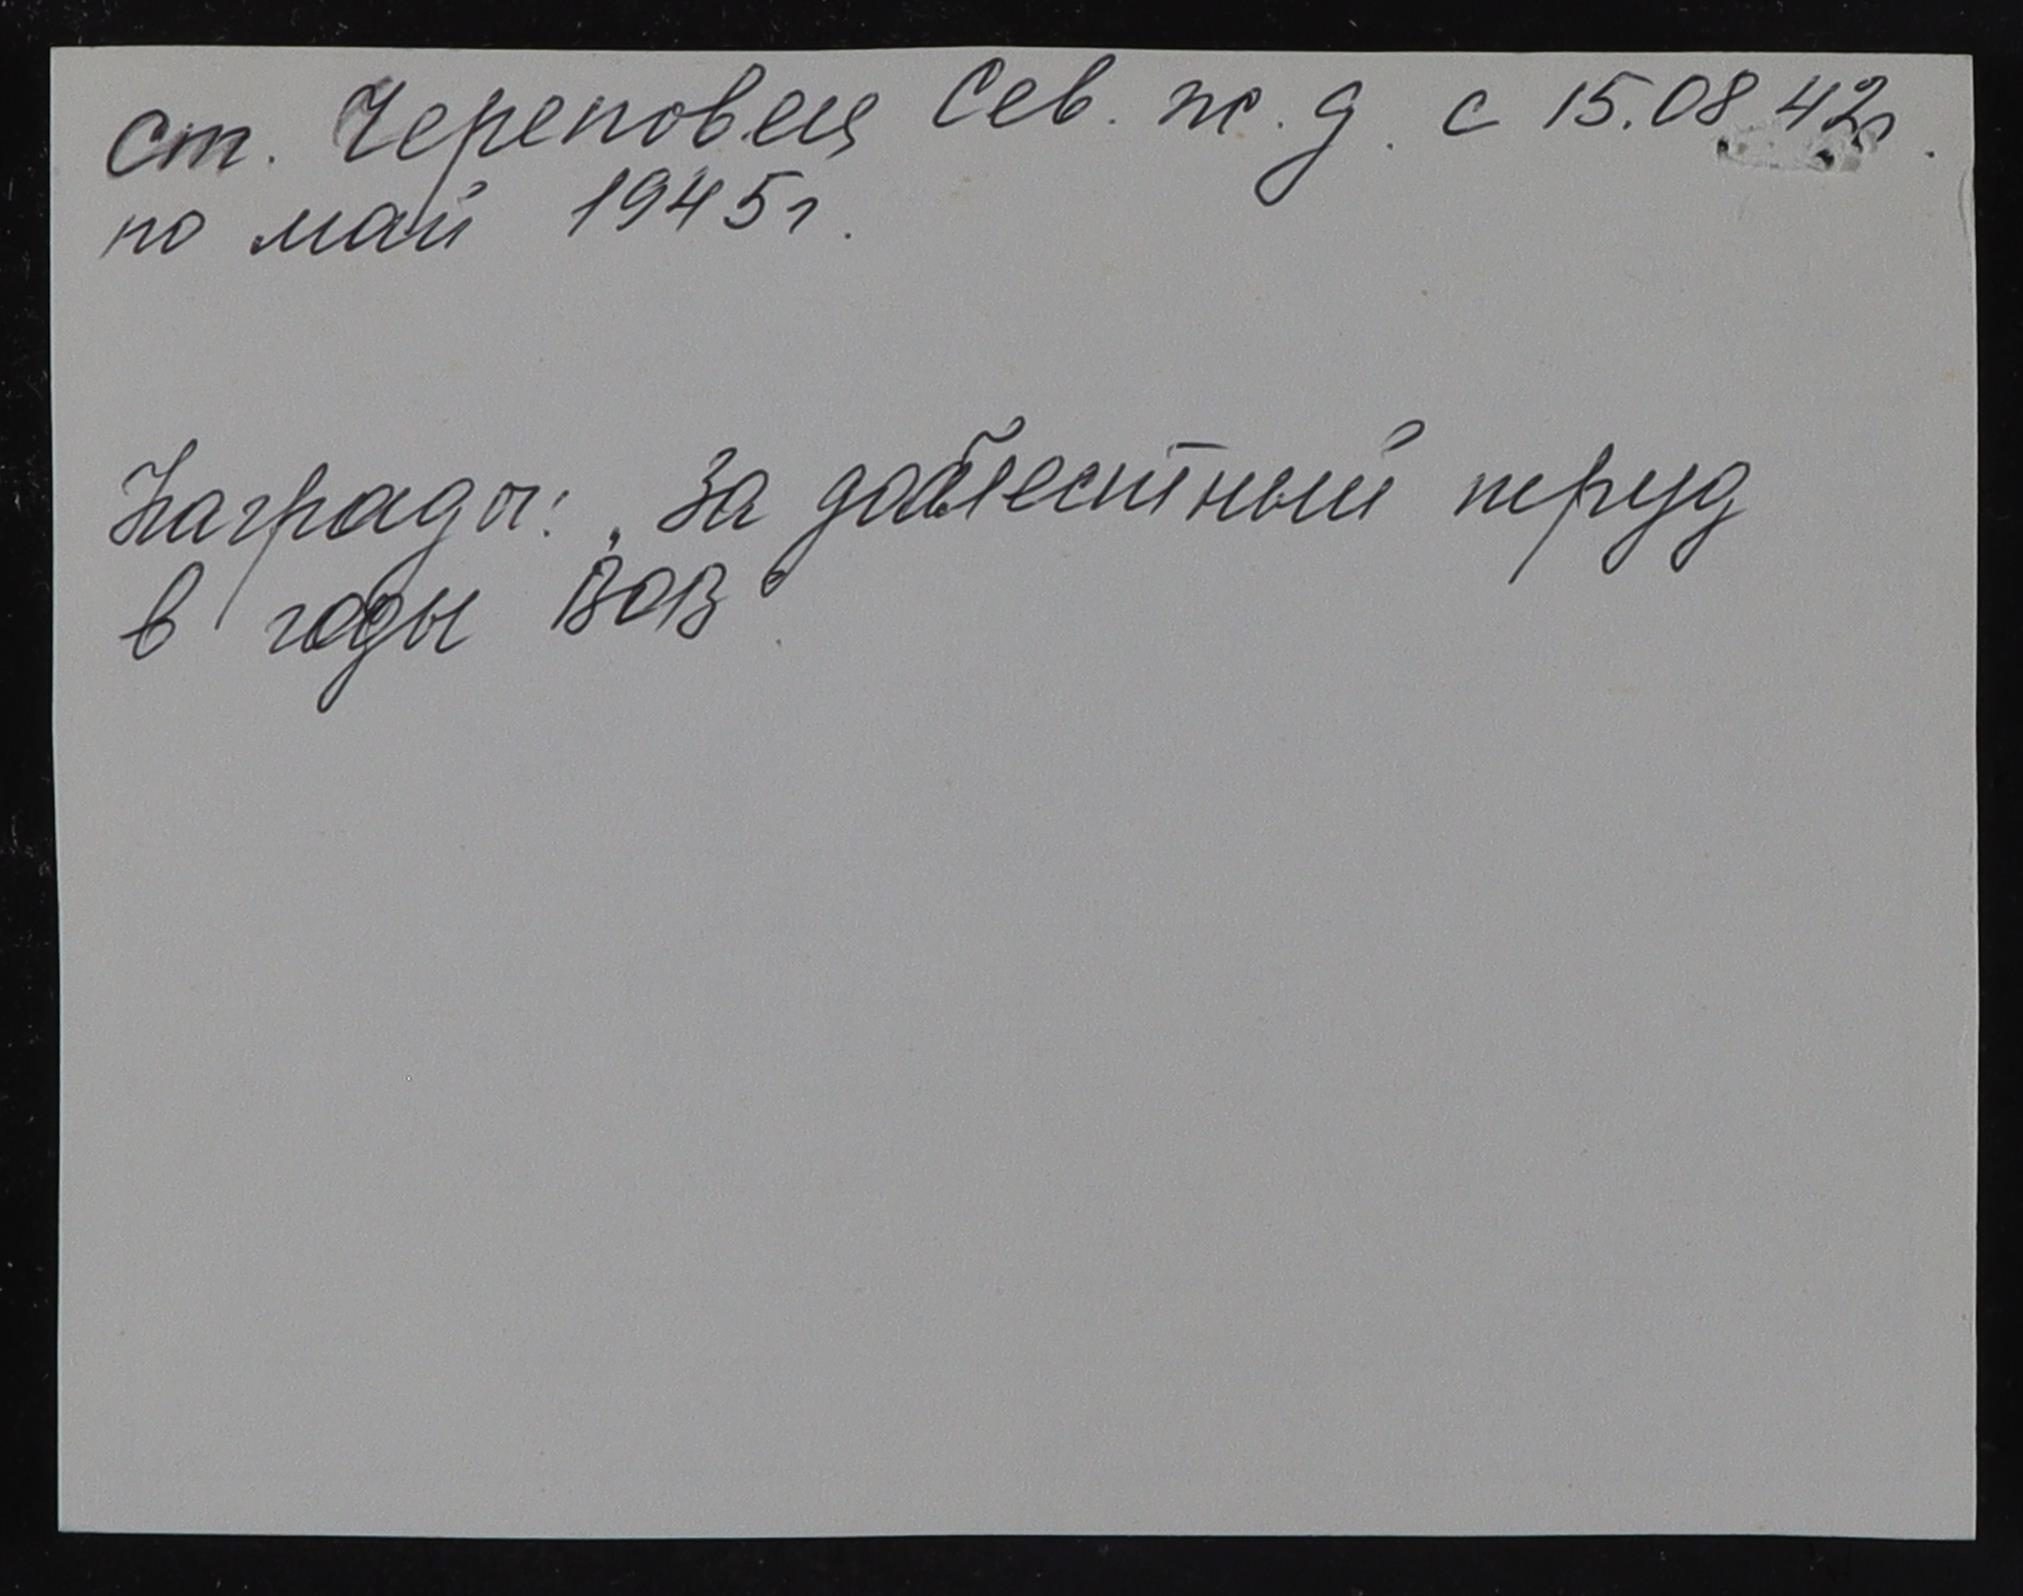 ст. Череповец Сев. ж. д. с 15.08.42г.
по май 1945г.
Награды: „За доблестный труд
в годы ВОВ“.